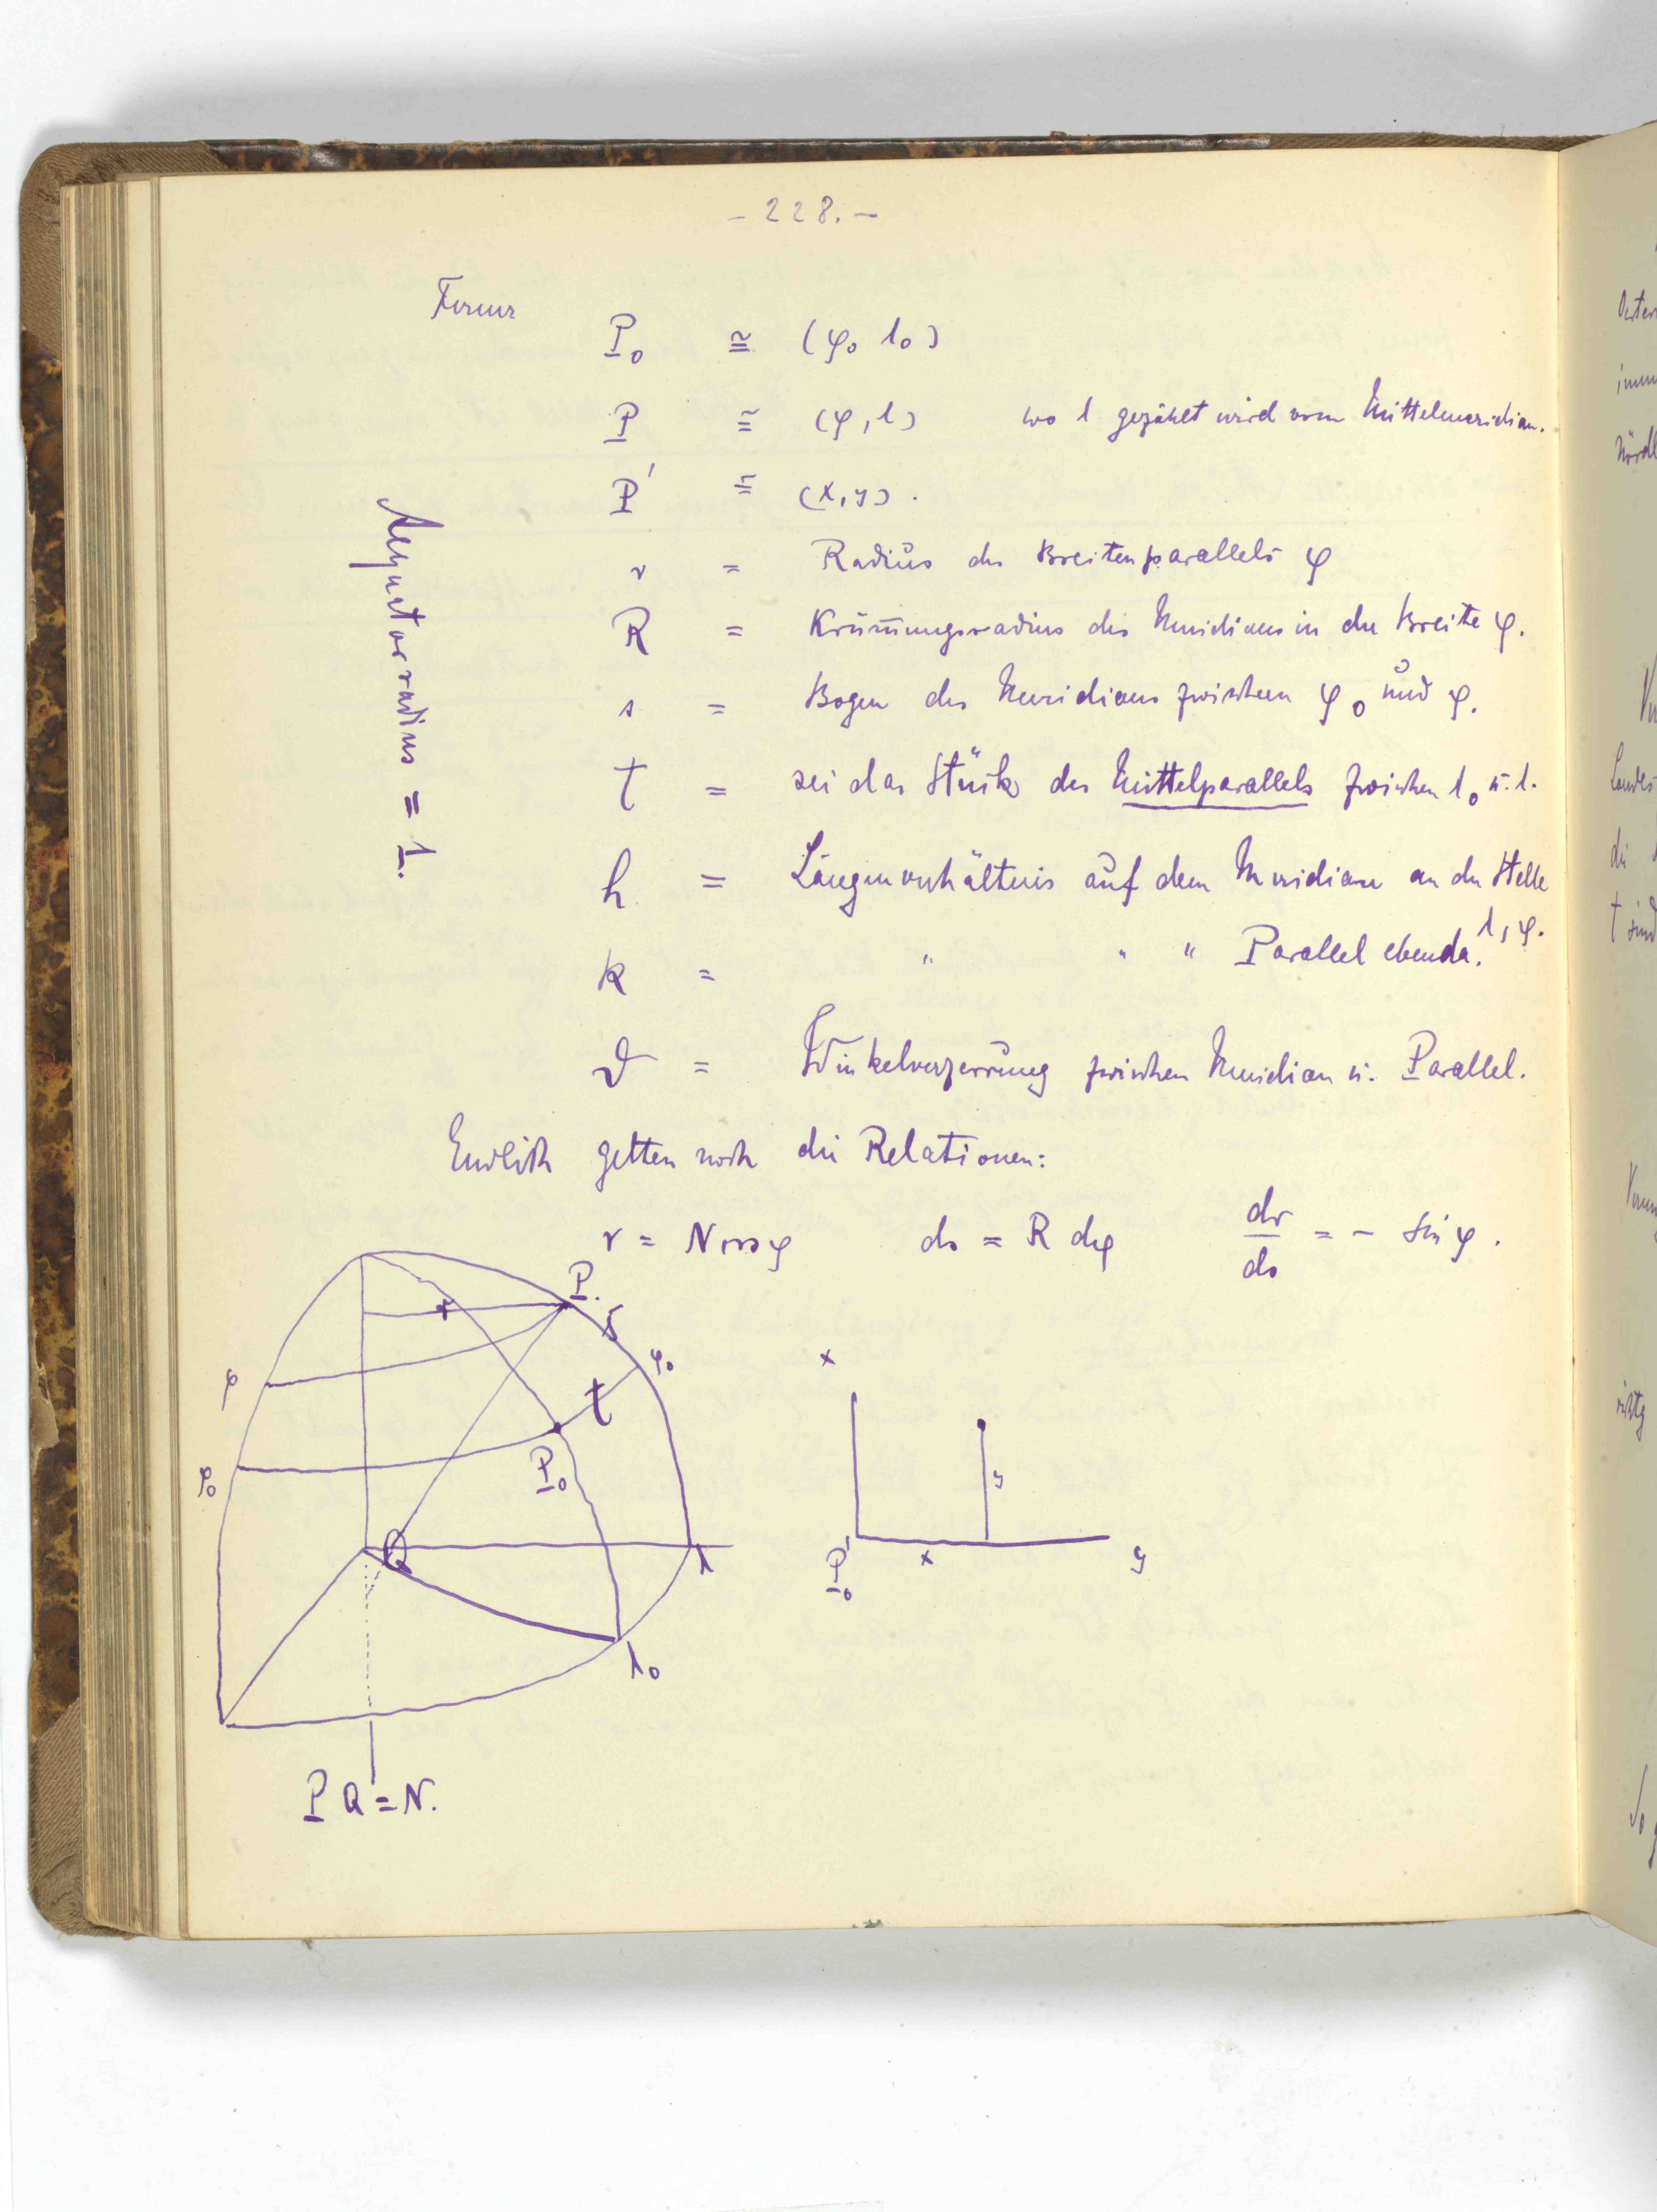 - 228. -
Ferner
P₀ ≅ (φ₀ l₀)
P ≅ (φ, l) wo l gezählt wird vom Mittelmeridian.
P' ≅ (x, y).
r = Radius des Breitenparallels φ
R = Krümmungsradius des Meridians in der Breite φ.
s = Bogen des Meridians zwischen φ₀ und φ.
t = sei das Stück des Mittelparallels zwischen l₀ u. l.
h = Längenverhältnis auf dem Meridian an der Stelle
l, φ.
k = " " " Parallel ebenda.
ϑ = Winkelverzerrung zwischen Meridian u. Parallel.
Aequatorradius = 1.
Endlich gelten noch die Relationen:
r = N cos φ ds = R dφ dr/ds = - sin φ.
P.
r
s
φ
φ₀
t
φ₀
P₀
Q
λ
λ₀
PQ = N.
x
y
P₀'
x
y